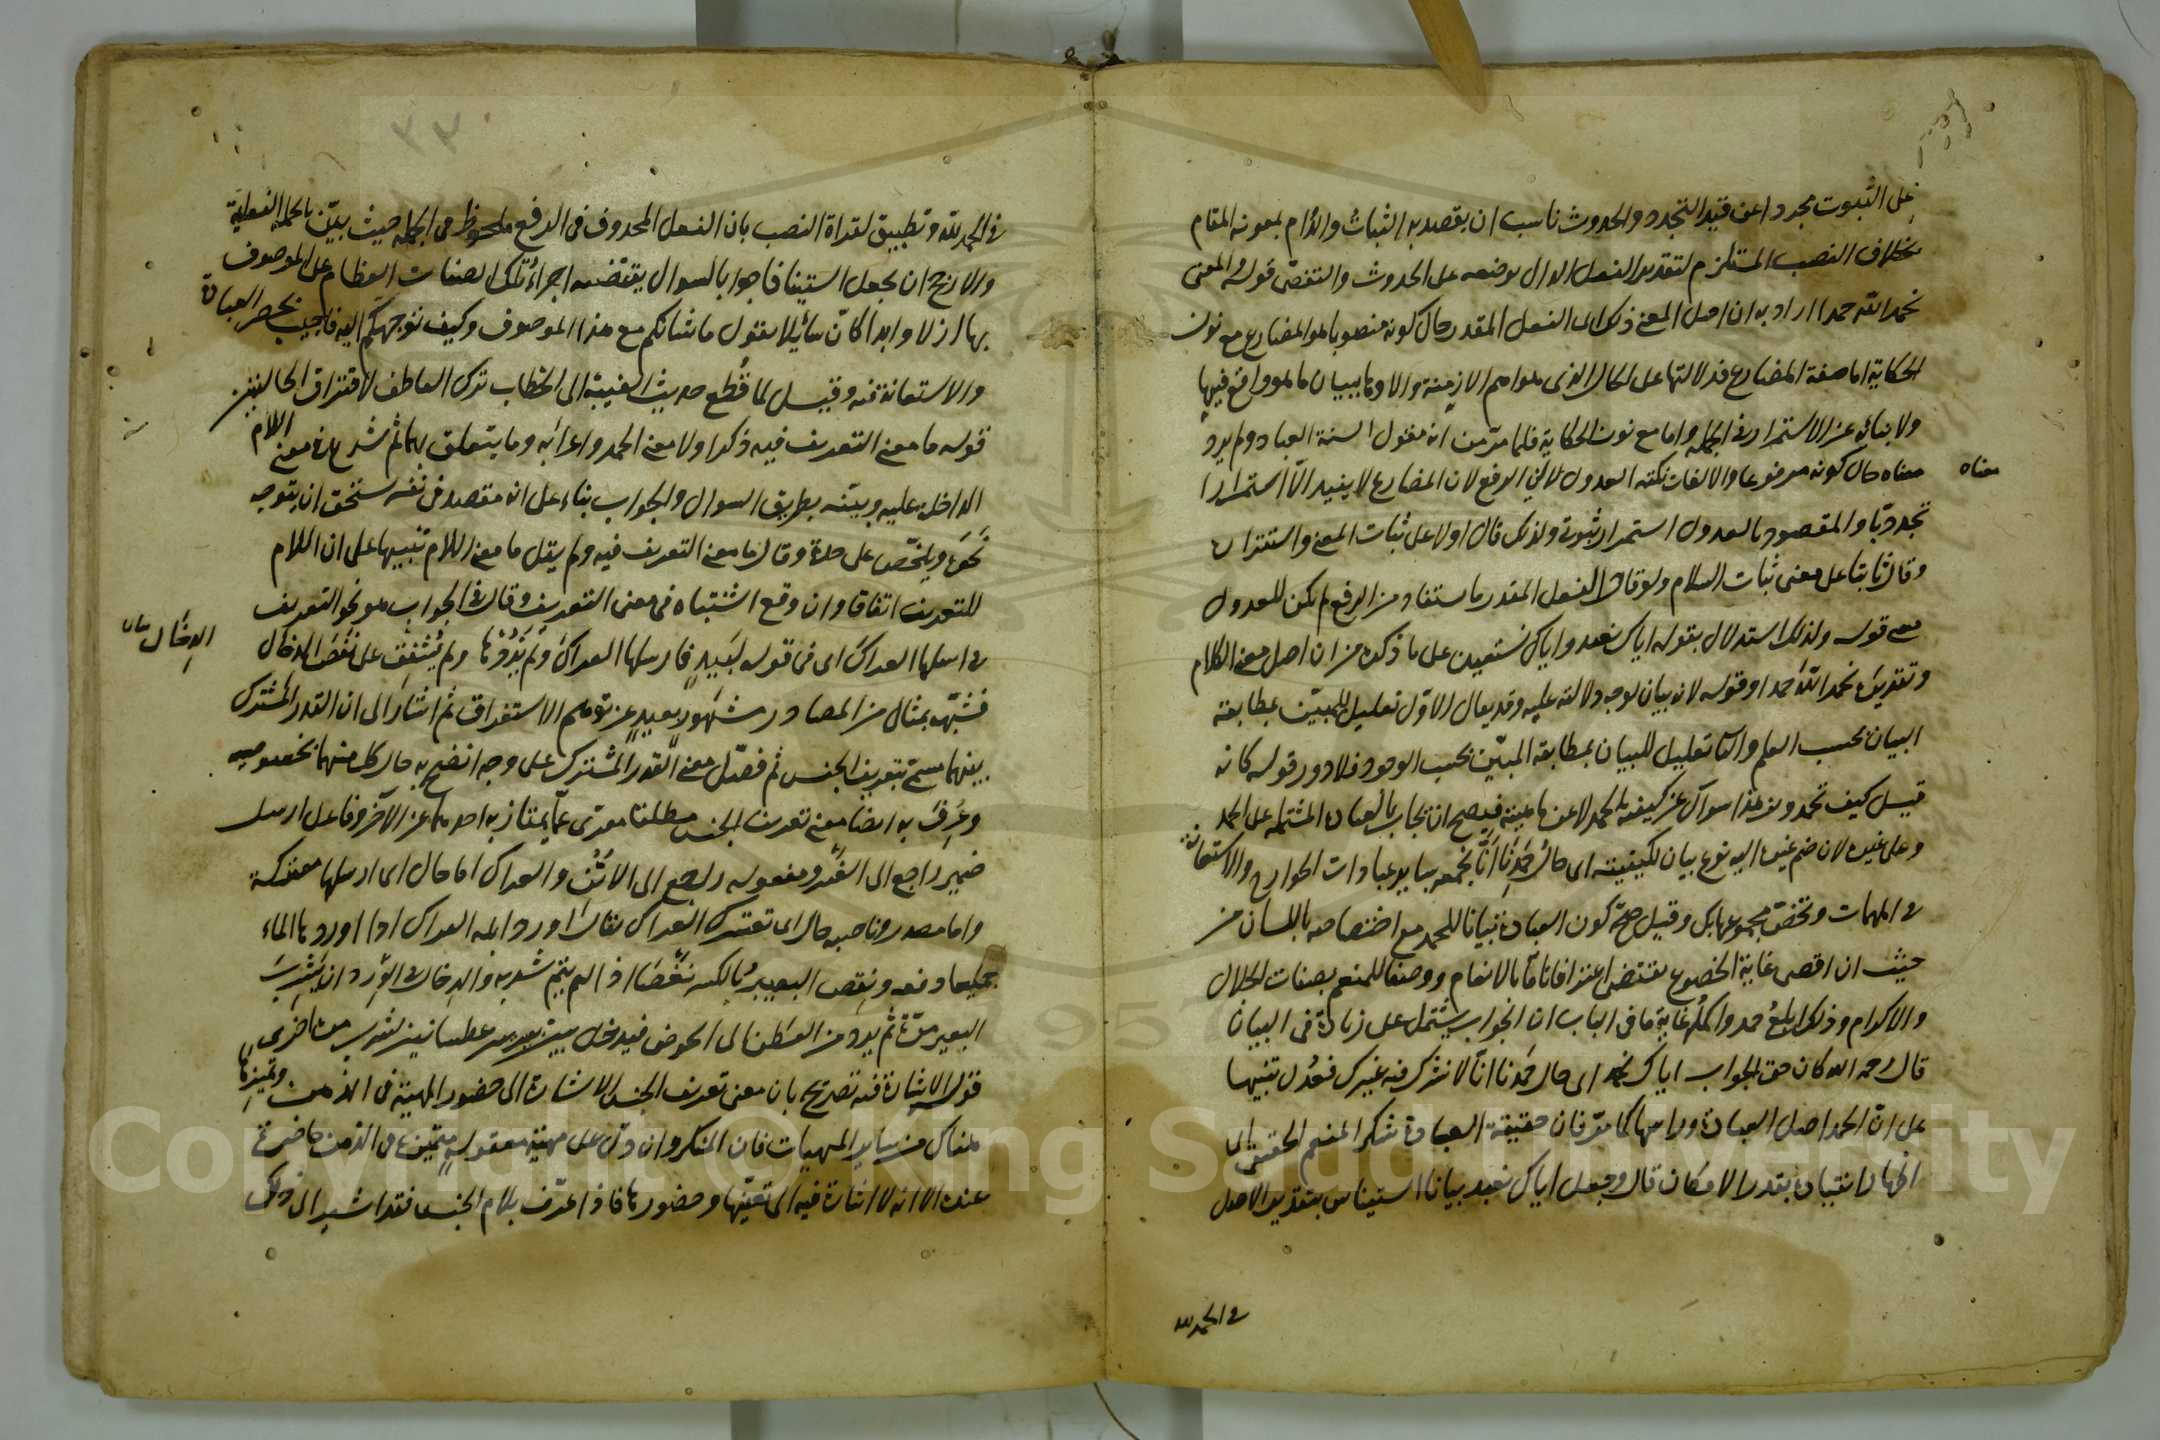 على الثبوت مجردا عن قيد التجدد والحدوث ناسب ان يقصد به الثبات والدوام بمعونة المقام
بخلاف النصب المستلزم لتقدير الفعل الدال بوضعه على الحدوث والتقضى قوله والمعنى
نحمد الله حمدا اراد به ان اصل المعنى ذلك اى الفعل المقدر حال كونه منصوبا هو المضارع مع نون
الحكاية اما صيغة المضارع فلدلالتها على الحال الذى هو اهم الازمنة والاولى ببيان ما هو واقع فيها
ولا بنائه عن الاستمرار فى الجملة واما مع نون الحكاية فلما مر من انه مقول على السنة العباد ولم يرد
معناه
معناه حال كونه مرفوعا والا لفات نكتة العدول الى الرفع لان المضارع لا يفيد الا استمرارا
تجدديا والمقصود بالعدول استمرار ثبوتى ولذلك قال اولا على ثبات المعنى واستقراره
وقال ثانيا على معنى ثبات السلام ولو كان الفعل المقدر مستفادا من الرفع لم يكن للعدول
معنى قوله ولذلك استدلال بقوله اياك نعبد واياك نستعين على ما ذكره من ان اصل معنى الكلام
وتقديره نحمد الله حمدا وقوله لانه بيان لوجه دلالته عليه وقد يقال الاول تعليل للمبين بمطابقة
البيان بحسب العلم والثانى تعليل للبيان بمطابقة المبين بحسب الوجود فلا دور قوله كانه
قيل كيف تحمدونه هذا سوال عن كيفية الحمد لا عن ماهيته فيصح ان يجاب بالعبادة المشتملة على الحمد
وعلى غيره لان ضم غيره اليه نوع بيان لكيفيته اى حال حمدنا انا نجمعه بسائر عبادات الجوارح والاستعانة
فى المهمات ونخص مجموعها بك وقيل صح كون العبادة بيانا للحمد مع اختصاصه باللسان من
حيث ان اقصى غاية الخضوع يقتضى اعترافا تاما بالانعام ووصفا للمنعم بصفات الجلال
والاكرام وذلك ابلغ حمد واكمله غاية ما فى الباب ان الجواب يشتمل على زيادة فى البيان
قال رحمه الله كان حق الجواب اياك نحمد اى حال حمدنا انا لا نشرك فيه غيرك فعدل تنبيها
على ان الحمد اصل العبادة وراسها كما مر فان حقيقة العبادة شكر المنعم الحقيقى اى
اظهار انقياده بقدر الامكان قال وجعل اياك نعبد بيانا استيناس بتقدير الاصل
فى الحمد لله
فى الحمد لله وتطبيق لقراة النصب بان الفعل المحذوف فى الرفع ملحوظ فى الجملة حيث بين بالجملة الفعلية
والارجح ان يجعل استينافا جوابا لسوال يقتضيه اجراء تلك الصفات العظام على الموصوف
بها ازلا وابدا كان سائلا يقول ما شانكم مع هذا الموصوف وكيف توجهكم اليه فاجيب بحصر العبادة
والاستعانة فيه وقيل لما قطع حديث الغيبة الى الخطاب ترك العاطف لافتراق الحالتين
قوله ما معنى التعريف فيه ذكر اولا معنى الحمد واعرابه وما يتعلق بهما ثم شرع فى معنى اللام
الداخلة عليه وبينه بطريق السوال والجواب بناء على انه مقصد فى نفسه يستحق ان يتوجه
نحوه ويلخص على حدة وقال ما معنى التعريف فيه ولم يقل ما معنى اللام تنبيها على ان اللام
للتعريف اتفاقا وان وقع اشتباه فى معنى التعريف وقال فى الجواب هو نحو التعريف
فى ارسلها العراك اى فى قوله لبيد فارسلها العراك ولم يذدها ولم يشفق على نغص الدخال
الدخال
فشبه بمثال من المصادر مشهور بعيد عن توهم الاستغراق ثم اشار الى ان القدر المشترك
بينهما مسمى بتعريف الجنس ثم فصل معنى القدر المشترك على وجه اتضح به حال كل منهما بخصوصه
وعرف به ايضا معنى تعريف الجنس مطلقا معرى عما يمتاز به احدهما عن الآخر وفاعل ارسل
ضمير راجع الى العير ومفعوله راجع الى الاتن والعراك اما حال اى ارسلها معتركة
واما مصدر وناصبه حال اى تعترك العراك يقال اورد ابله العراك اذا اوردها الماء
جميعا دفعة ونغص البعير بالكسر نغصا اذا لم يتم شربه والدخال فى الورد ان يشرب
البعير مرة ثم يرد من العطن الى الحوض فيدخل بين بعيرين عطشانين ليشرب مرة اخرى
قوله الاشارة فيه تصريح بان معنى تعريف الجنس الاشارة الى حضور المهية فى الذهن وتميزها
هناك من سائر المهيات فان المنكر وان دل على مهية معقولة متميزة فى الذهن حاضرة
عنده الا انه لا اشارة فيه الى تعينها وحضورها فاذا عرف بلام الجنس فقد اشير الى ذلك
Copyright © King Saud University